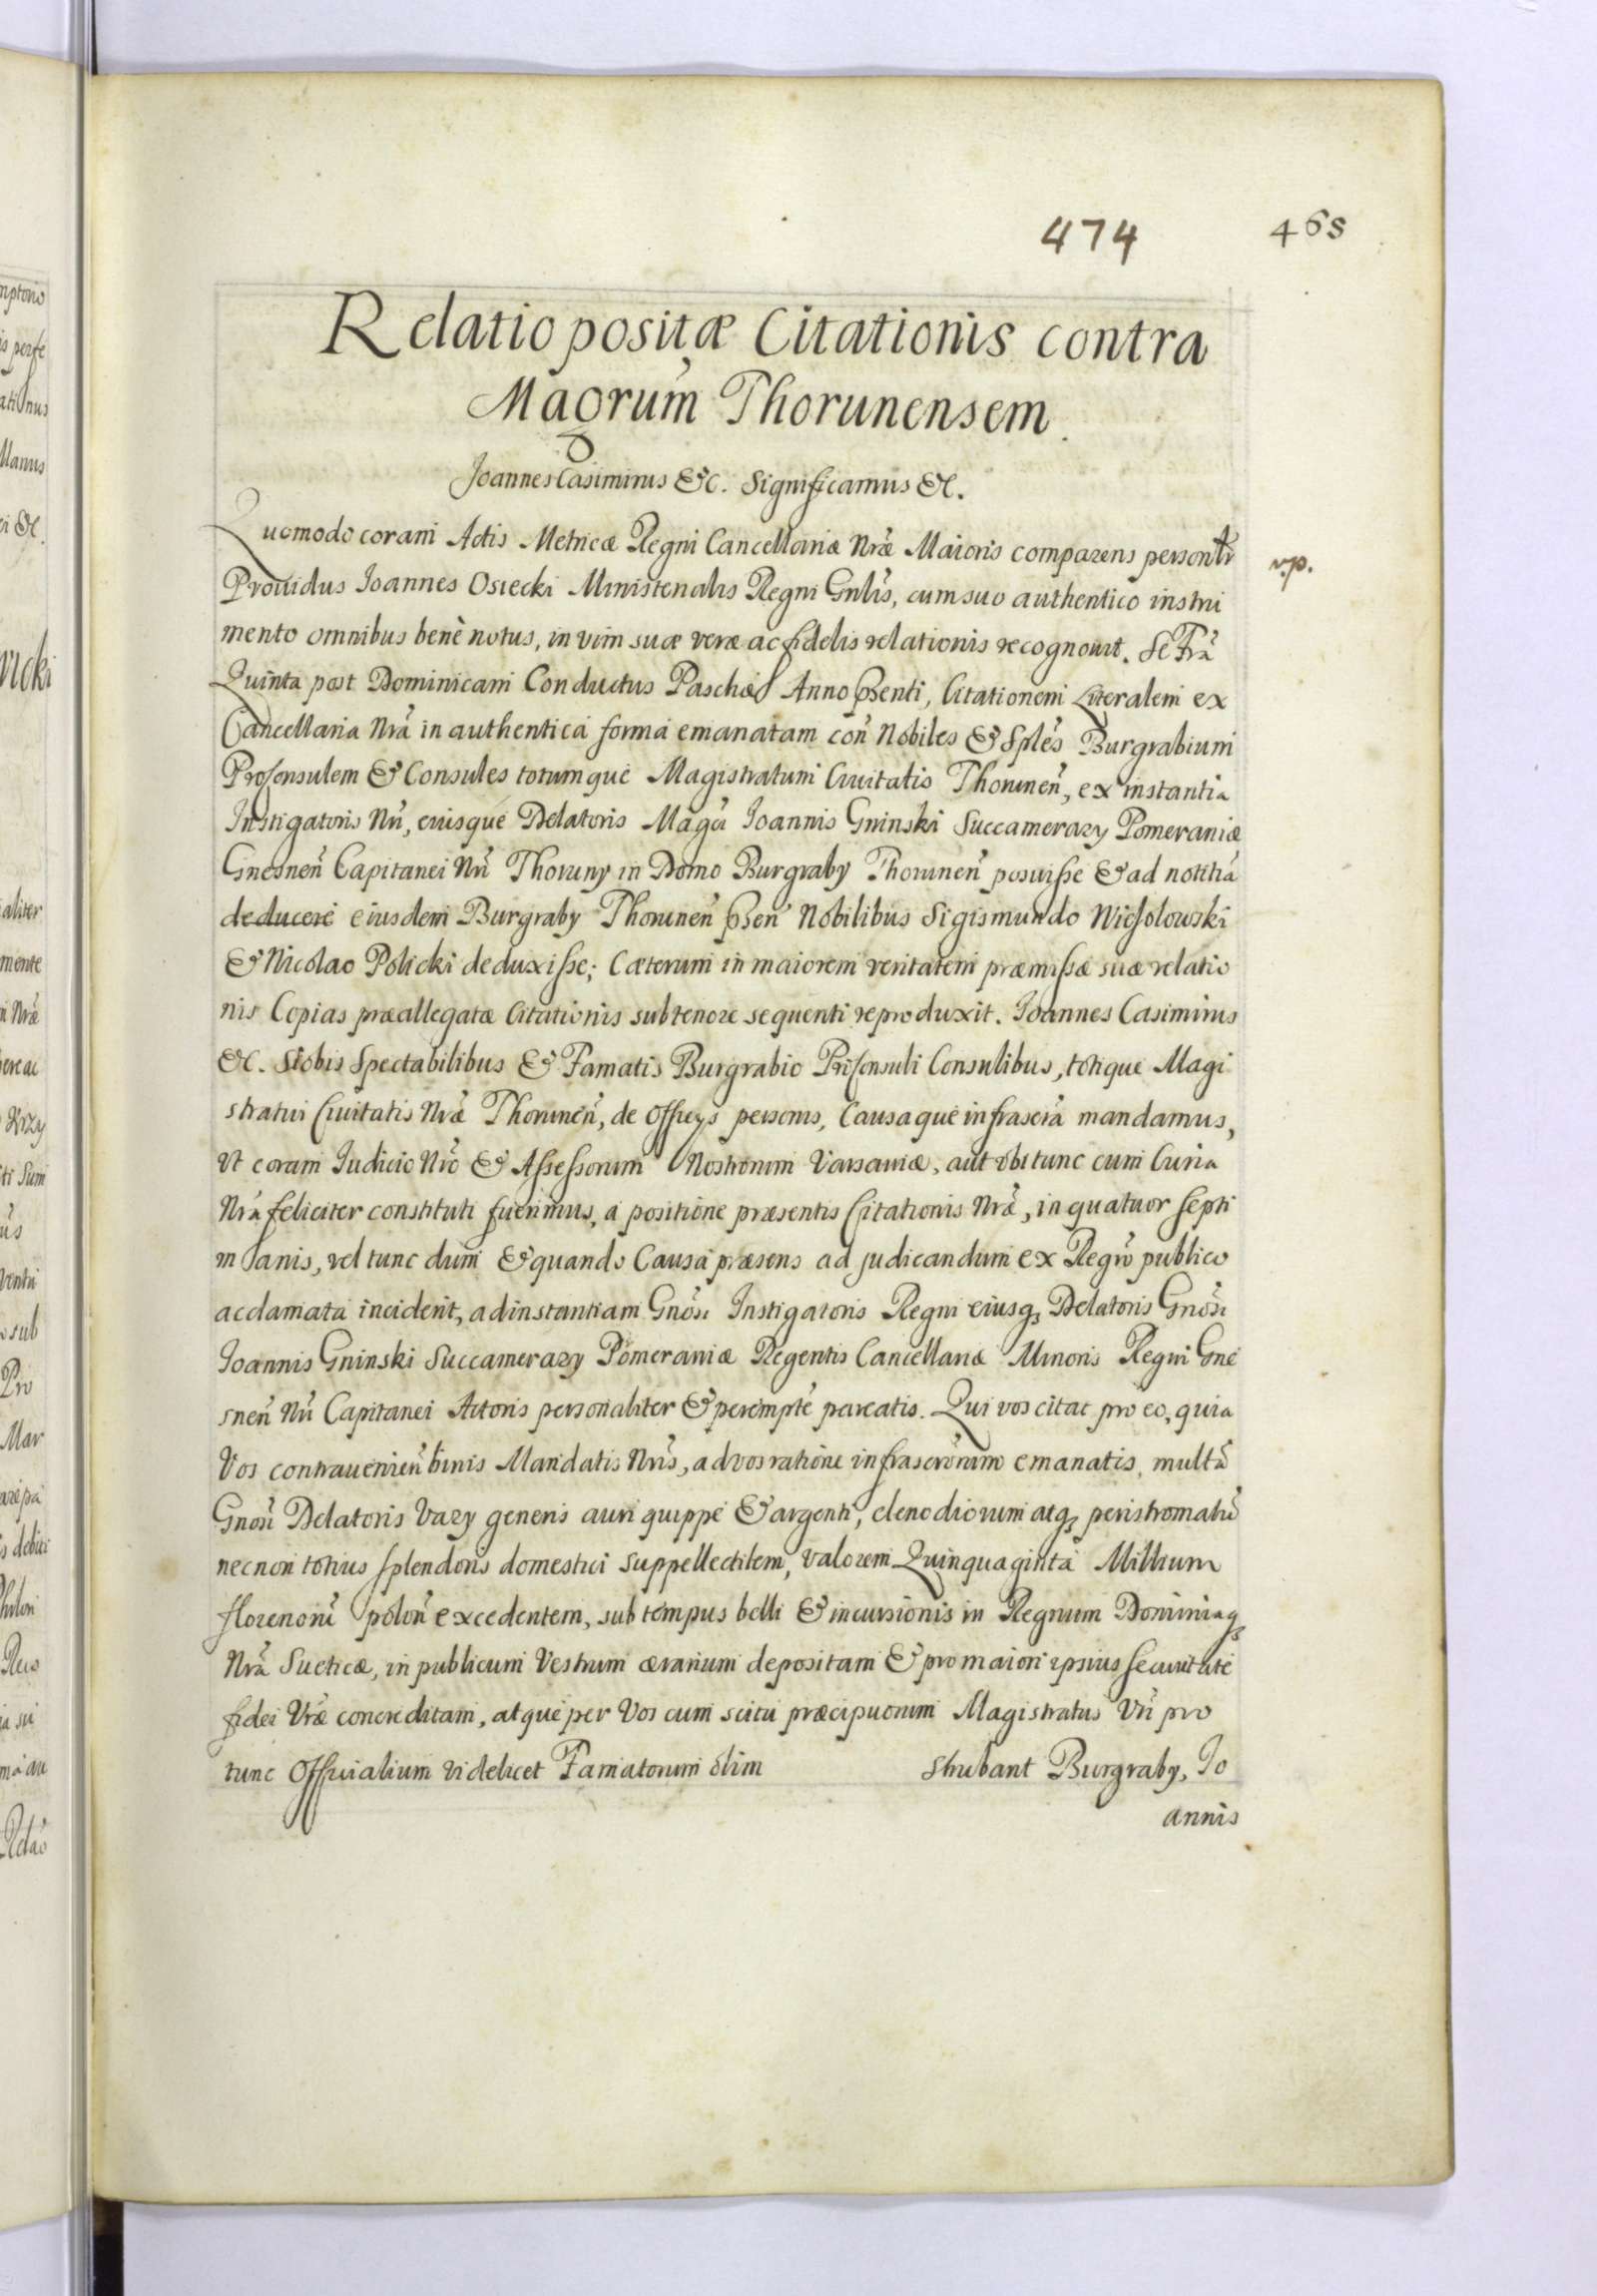 474 468
Relatio positæ Citationis contra
Magrum Thorunensem.
Joannes Casimirus &c. Significamus &c.
Quomodo coram Actis Metricæ Regni Cancellariæ Nræ Maioris comparens personlr
Prouidus Joannes Osiecki Ministerialis Regni Gnlis, cum suo authentico instru
mento omnibus benè notus, in vim suæ veræ ac fidelis relationis recognouit. Se Fra
Quinta post Dominicam Conductus Paschæ Anno pnti, Citationem Literalem ex
Cancellaria Nra in authentica forma emanatam con Nobiles & Sples Burgrabium
Proconsulem & Consules totumque Magistratum Ciuitatis Thorunen, ex instantia
Instigatoris Nri, eiusque Delatoris Magci Joannis Gninski Succamerary Pomeraniæ
Gnesnen Capitanei Nri Thoruny in Domo Burgraby Thorunen posuisse & ad notitiā
deducere eiusdem Burgraby Thorunen psen Nobilibus Sigismundo Wiesolowski
& Nicolao Policki deduxisse; Cæterum in maiorem veritatem præmissæ suæ relatio
nis Copias præallegatæ Citationis sub tenore sequenti reproduxit. Joannes Casimirus
&c. Vobis Spectabilibus & Famatis Burgrabio Proconsuli Consulibus, totique Magi
stratui Ciuitatis Nræ Thorunen, de Officys personis, Causaque infrascra mandamus,
Vt coram Judicio Nro & Assessorum Nostrorum Varsauiæ, aut vbi tunc cum Curia
Nra feliciter constituti fuerimus, a positione præsentis Citationis Nræ, in quatuor Septi
manis, vel tunc dum & quando Causa præsens ad judicandum ex Regro publico
acclamata inciderit, ad instantiam Gnosi Instigatoris Regni eiusq; Delatoris Gnosi
Joannis Gninski Succamerary Pomeraniæ Regentis Cancellariæ Minoris Regni Gne
snen Nri Capitanei Actoris personaliter & perempte pareatis. Qui vos citat pro eo, quia
Vos contrauenien binis Mandatis Nris, ad vos ratione infrascrorum emanatis, multā
Gnosi Delatoris Vary generis auri quippe & argenti, clenodiorum atq; peristromatū
necnon totius splendoris domestici suppellectilem, valorem Quinquaginta Millium
florenorū polon excedentem, sub tempus belli & incursionis in Regnum Dominiaq;
Nra Sueticæ, in publicum Vestrum ærarium depositam & pro maiori ipsius securitate
fidei Vræ concreditam, atque per Vos cum scitu præcipuorum Magistratus Vri pro
tunc Officialium videlicet Famatorum olim Strubant Burgraby, Jo
annis